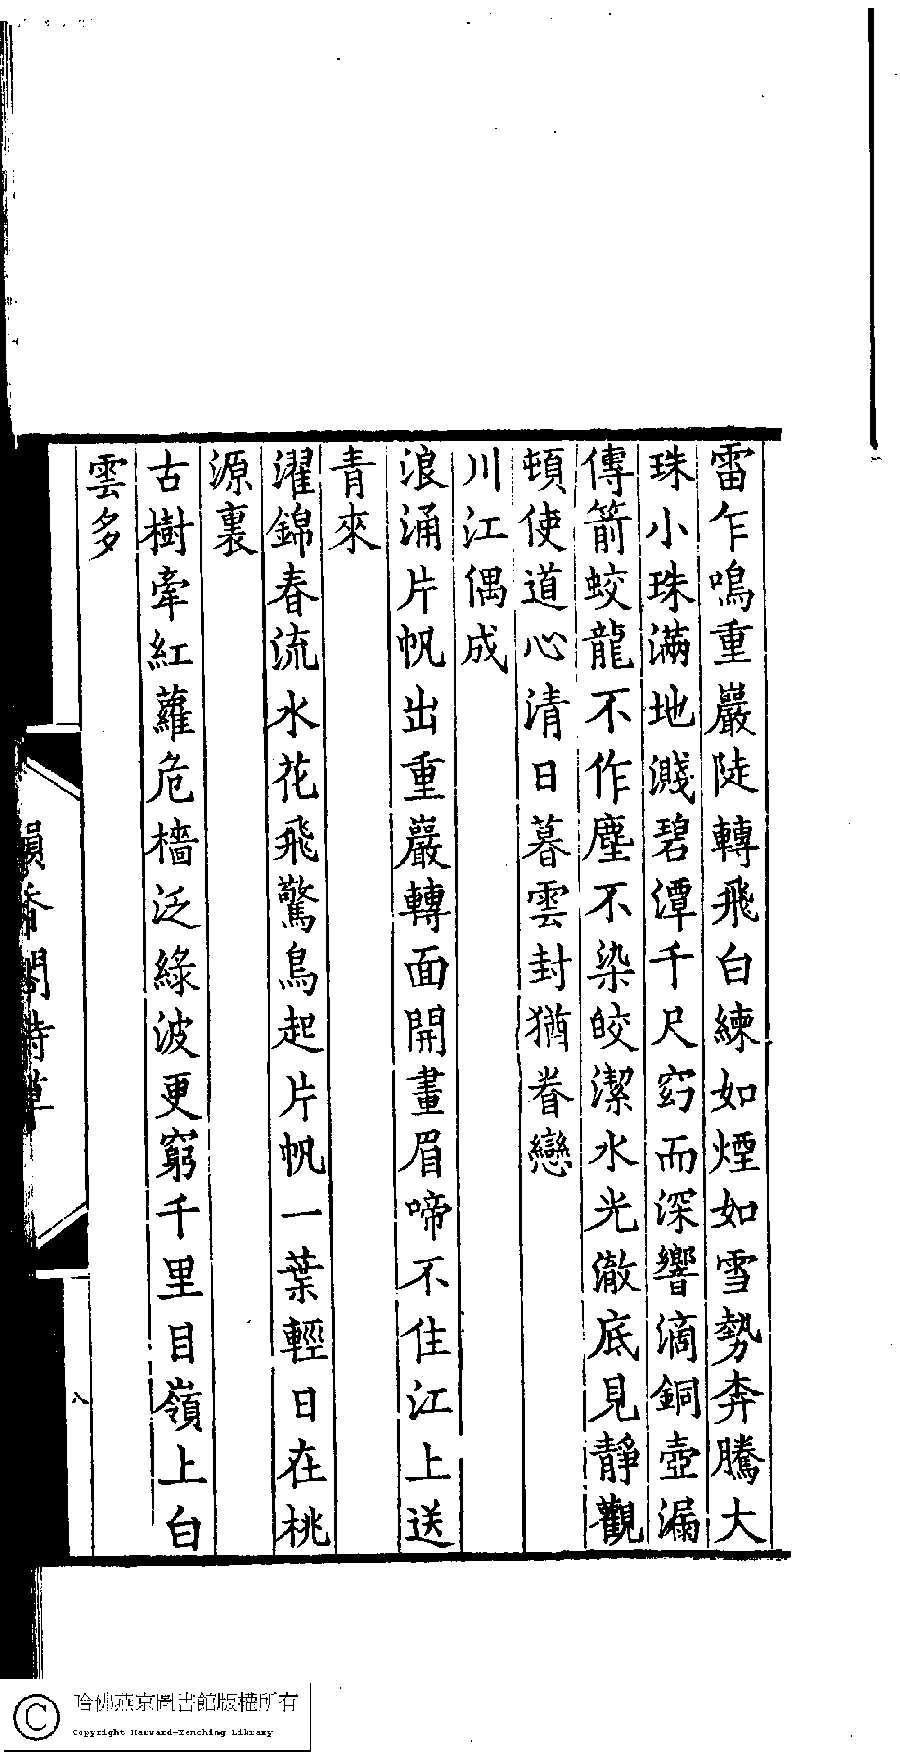 雷乍鳴重巖陡轉飛白練如煙如雪勢奔騰大
珠小珠滿地濺碧潭千尺窈而深響滴銅壺漏
傳箭蛟龍不作塵不染皎潔水光澈底見靜觀
頓使道心清日暮雲封猶眷戀
川江偶成
浪涌片帆出重巖轉面開畫眉啼不住江上送
青來
濯錦春流水花飛驚鳥起片帆一葉輕日在桃
源裏
古樹牽紅蘿危檣泛綠波更窮千里目嶺上白
雲多
韻香閣詩草
八
哈佛燕京圖書館版權所有
Copyright Harvard-Yenching Library